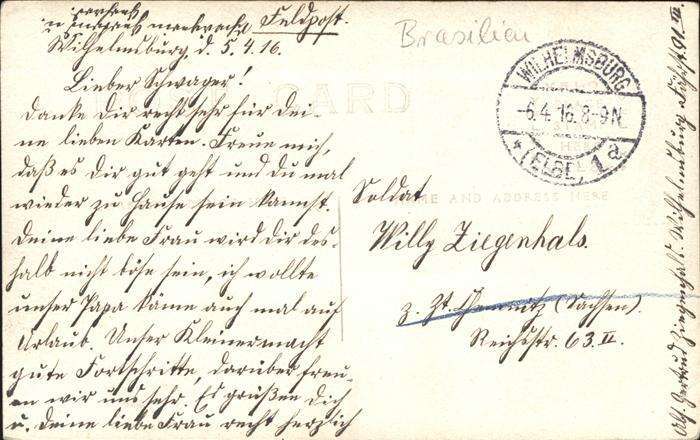 Feldpost.
Wilhelmsburg, d. 5.4.16.
Lieber Schwager!
Danke Dir recht sehr für Dei-
ne lieben Karten. Freue mich,
daß es dir gut geht und du mal
wieder zu Hause sein kannst.
Deine liebe Frau wird dir des-
halb nicht böse sein, ich wollte
unser Papa käme auch mal auf
Urlaub. Unser Kleiner macht
gute Fortschritte, darüber freu-
en wir uns sehr. Es grüßen Dich
u. Deine liebe Frau recht herzlich
Brasilien
CARD
WILHELMSBURG
-6.4.16. 8-9N.
* (ELBE) 1a
NAME AND ADDRESS HERE
Soldat
Willy Ziegenhals.
z. Zt. Chemnitz (Sachsen).
Reichsstr. 63. II.
Abs. Gertrud Ziegenhals. Wilhelmsburg 91. III.